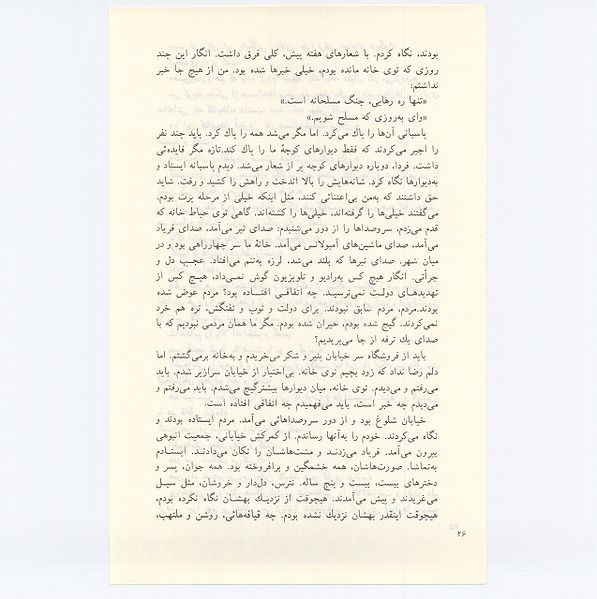 بودند، نگاه کردم. با شعارهای هفته پیش، کلی فرق داشت. انگار این چند
روزی که توی خانه مانده بودم، خیلی خبرها شده بود. من از هیچ جا خبر
نداشتم:
«تنها ره رهایی، جنگ مسلحانه است.»
«وای به‌روزی که مسلح شویم.»
پاسبانی آن‌ها را پاك می‌کرد. اما مگر می‌شد همه را پاك کرد. باید چند نفر
را اجیر می‌کردند که فقط دیوارهای کوچهٔ ما را پاك کند.تازه مگر فایده‌ئی
داشت. فردا، دوباره دیوارهای کوچه پر از شعار می‌شد. دیدم پاسبانه ایستاد و
به‌دیوارها نگاه کرد. شانه‌هایش را بالا انداخت و راهش را کشید و رفت. شاید
حق داشتند که به‌من بی‌اعتنائی کنند، مثل اینکه خیلی از مرحله پرت بودم.
می‌گفتند خیلی‌ها را گرفته‌اند، خیلی‌ها را کشته‌اند. گاهی توی حیاط خانه که
قدم می‌زدم، سروصداها را از دور می‌شنیدم: صدای تیر می‌آمد، صدای فریاد
می‌آمد، صدای ماشین‌های آمبولانس می‌آمد. خانهٔ ما سر چهارراهی بود و در
میان شهر. صدای تیرها که بلند می‌شد، لرزه به‌تنم می‌افتاد. عجب دل و
جرأتی. انگار هیچ کس به‌رادیو و تلویزیون گوش نمی‌داد، هیچ کس از
تهدیدهای دولت نمی‌ترسید. چه اتفاقی افتاده بود؟ مردم عوض شده
بودند.مردم، مردم سابق نبودند. برای دولت و توپ و تفنگش، تره هم خرد
نمی‌کردند. گیج شده بودم، حیران شده بودم. مگر ما همان مردمی نبودیم که با
صدای یك ترقه از جا می‌پریدیم؟
باید از فروشگاه سر خیابان پنیر و شکر می‌خریدم و به‌خانه برمی‌گشتم. اما
دلم رضا نداد که زود بچپم توی خانه. بی‌اختیار از خیابان سرازیر شدم. باید
می‌رفتم و می‌دیدم. توی خانه، میان دیوارها بیشترگیج می‌شدم. باید می‌رفتم و
می‌دیدم چه خبر است، باید می‌فهمیدم چه اتفاقی افتاده است.
خیابان شلوغ بود و از دور سروصداهائی می‌آمد. مردم ایستاده بودند و
نگاه می‌کردند. خودم را به‌آنها رساندم. از کمرکش خیابانی، جمعیت انبوهی
بیرون می‌آمد. فریاد می‌زدند و مشت‌هاشان را تکان می‌دادند. ایستادم
به‌تماشا. صورت‌هاشان، همه خشمگین و برافروخته بود. همه جوان، پسر و
دخترهای بیست، بیست و پنج ساله. نترس، دل‌دار و خروشان، مثل سیل
می‌غریدند و پیش می‌آمدند. هیچوقت از نزدیك بهشان نگاه نکرده بودم،
هیچوقت اینقدر بهشان نزدیك نشده بودم. چه قیافه‌هائی، روشن و ملتهب،
۲۶